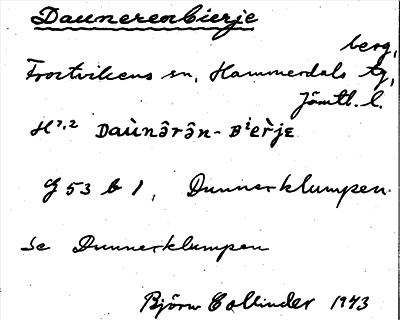 Daunerenbierje
berg,
Frostvikens sn, Hammerdals tg,
Jämtl. l.
H7,2 Daùnârân-Bierje
G 53 b 1, Dunnerklumpen.
Se Dunnerklumpen
Björn Collinder 1943